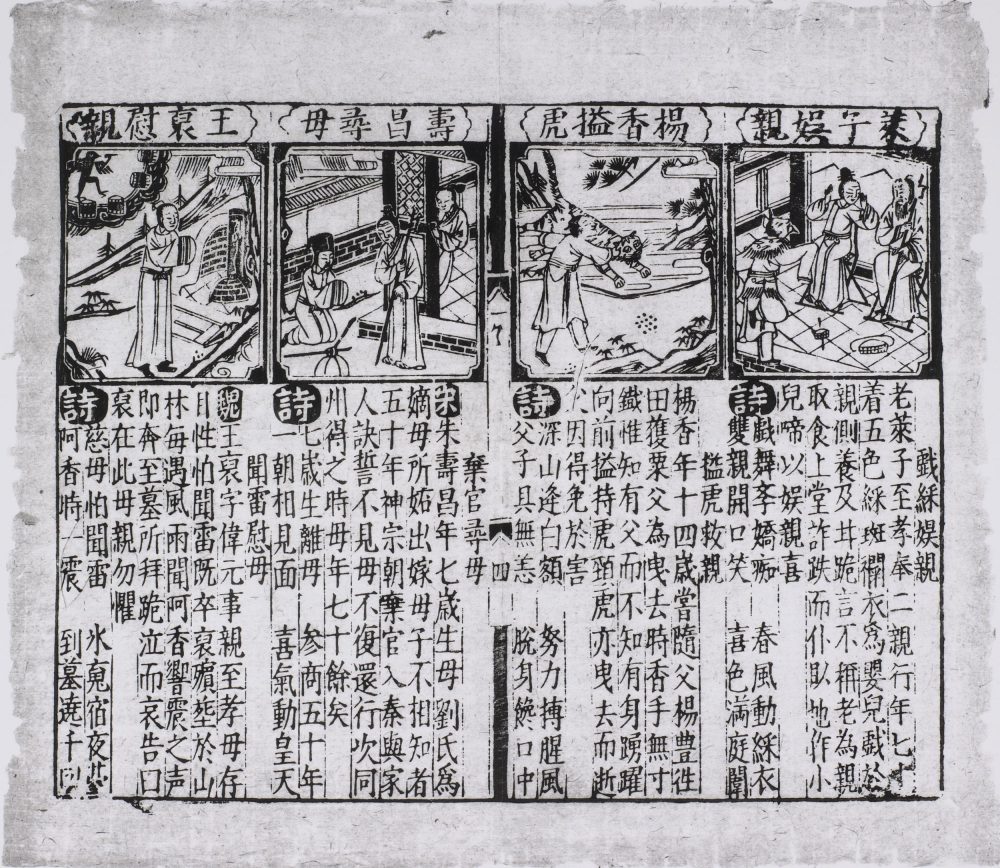 萊子娛親
戲綵娛親
老萊子至孝奉二親行年七十
着五色綵斑襴衣為嬰兒戲於
親側養及丼跪言不稱老為親
取食上堂詐跌而仆臥地作小
兒啼以娛親喜
詩
戲舞斈嬌痴 春風動綵衣
雙親開口笑 喜色滿庭闈
楊香搤虎
搤虎救親
楊香年十四歲嘗隨父楊豊徃
田獲粟父為曳去時香手無寸
鐵惟知有父而不知有身踴躍
向前搤持虎頸虎亦曳去而逝
因得免於害
詩
深山逢白額 努力搏腥風
父子具無恙 脫身饞口中
四
壽昌尋母
棄官尋母
宋朱壽昌年七歲生母劉氏爲
嫡母所妬出嫁母子不相知者
五十年神宗朝棄官入秦與家
人訣誓不見母不復還行次同
州得之時母年七十餘矣
詩
七歲生離母 參商五十年
一朝相見面 喜氣動皇天
王裒慰親
聞雷慰母
魏王裒字偉元事親至孝母存
日性怕聞雷既卒裒殯塟於山
林每遇風雨聞阿香響震之声
即奔至墓所拜跪泣而哀告曰
裒在此母親勿懼
詩
慈母怕聞雷 氷䰟宿夜
阿香時一震 到墓遶千